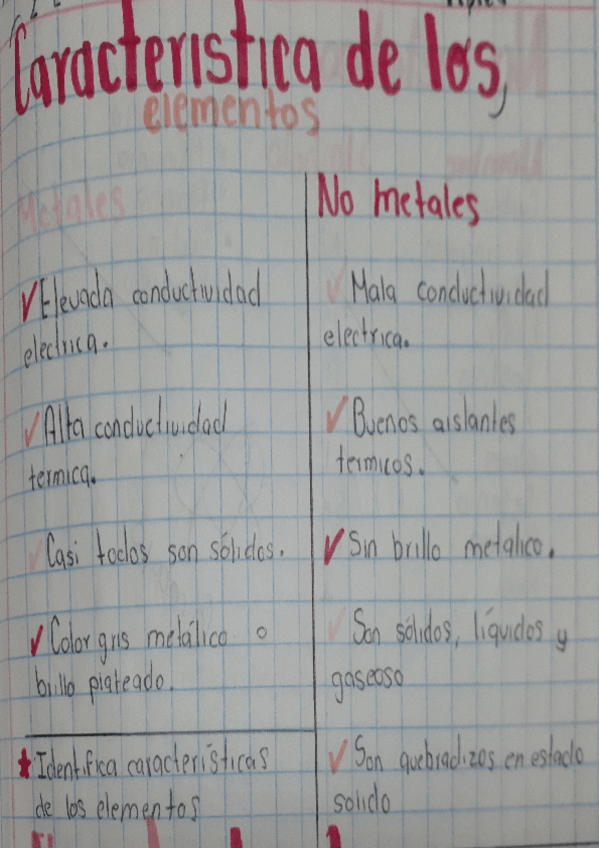 Caracteristica de los,
elementos
Metales
✓Elevada conductividad
electrica.
✓Alta conductividad
termica.
✓Casi todos son sólidos.
✓Color gris metálico o
brillo plateado.
★Identifica características
de los elementos
No metales
✓Mala conductividad
electrica.
✓Buenos aislantes
termicos.
✓Sin brillo metalico.
✓Son sólidos, líquidos y
gaseoso
✓Son quebradizos en estado
solido